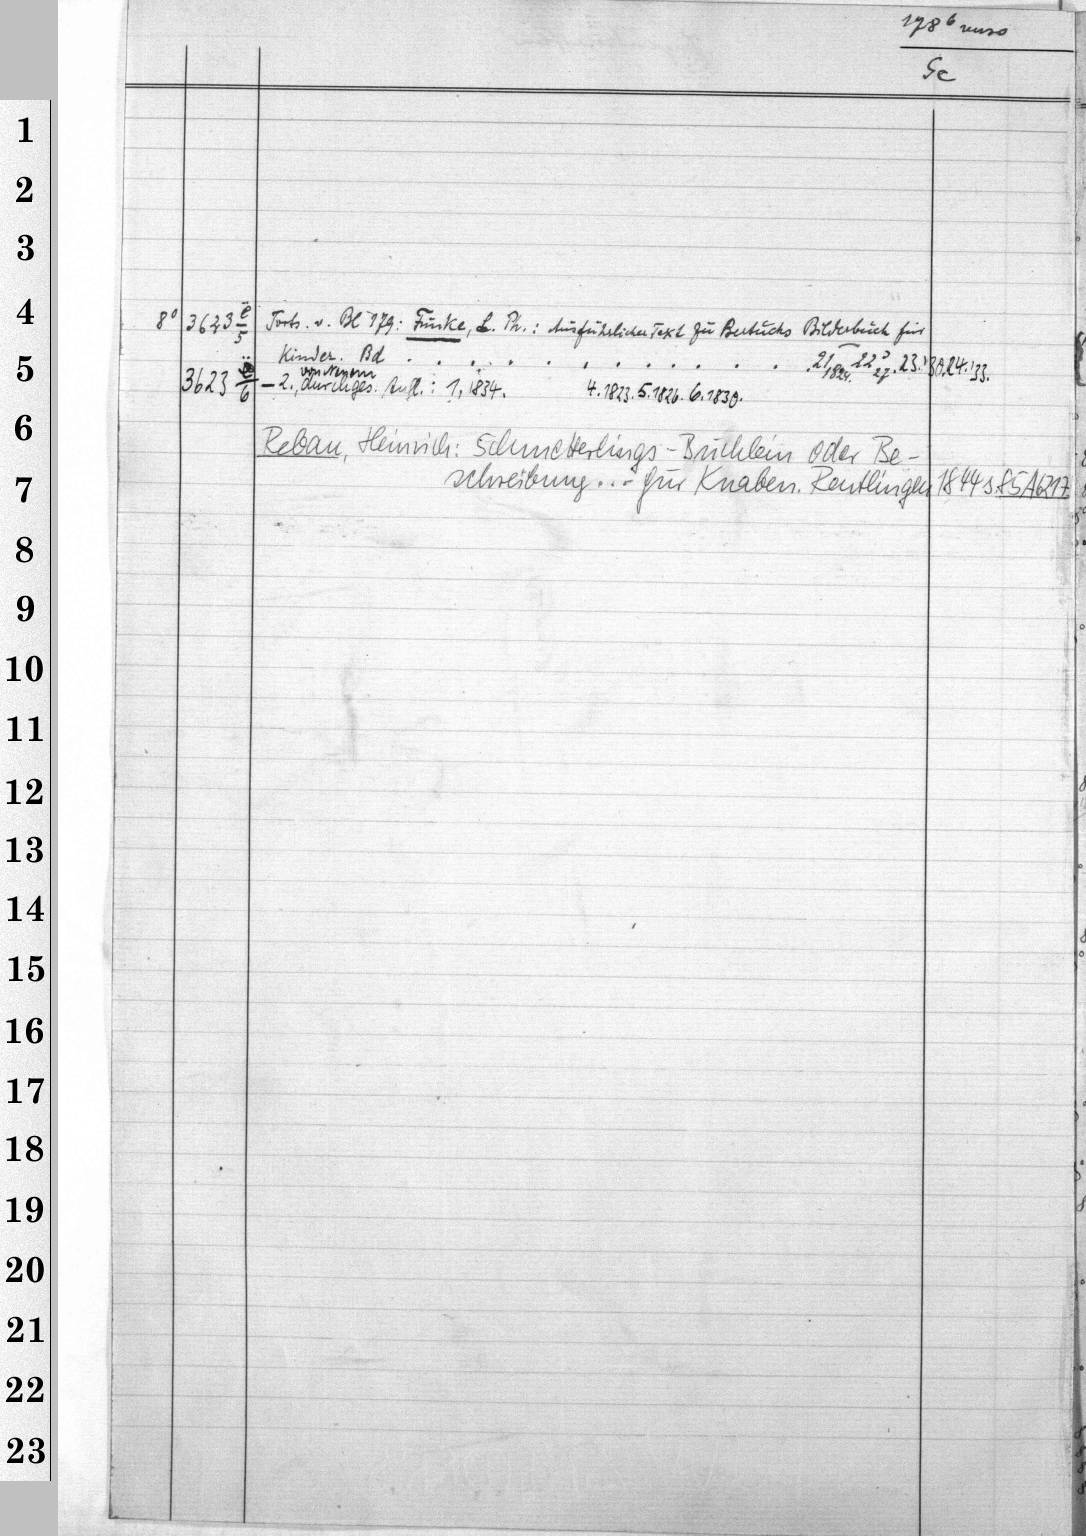 178 b verso
Gc
8° 3623 e/5 Forts. v. Bl 179: Funke, L. Ph.: Ausführlicher Text zu Bertuchs Bilderbuch für
Kinder. Bd . . . . . . . . . . . . 21 1824. 22 27. 23.'30. 24.'33.
von Neuem
3623 e/6 — 2., durchges. Aufl.: 1, 1834. 4.1823. 5.1826. 6.1830.
Rebau, Heinrich: Schmetterlings-Büchlein oder Be-
schreibung... für Knaben. Reutlingen 1844 s. 85A6217
1
2
3
4
5
6
7
8
9
10
11
12
13
14
15
16
17
18
19
20
21
22
23